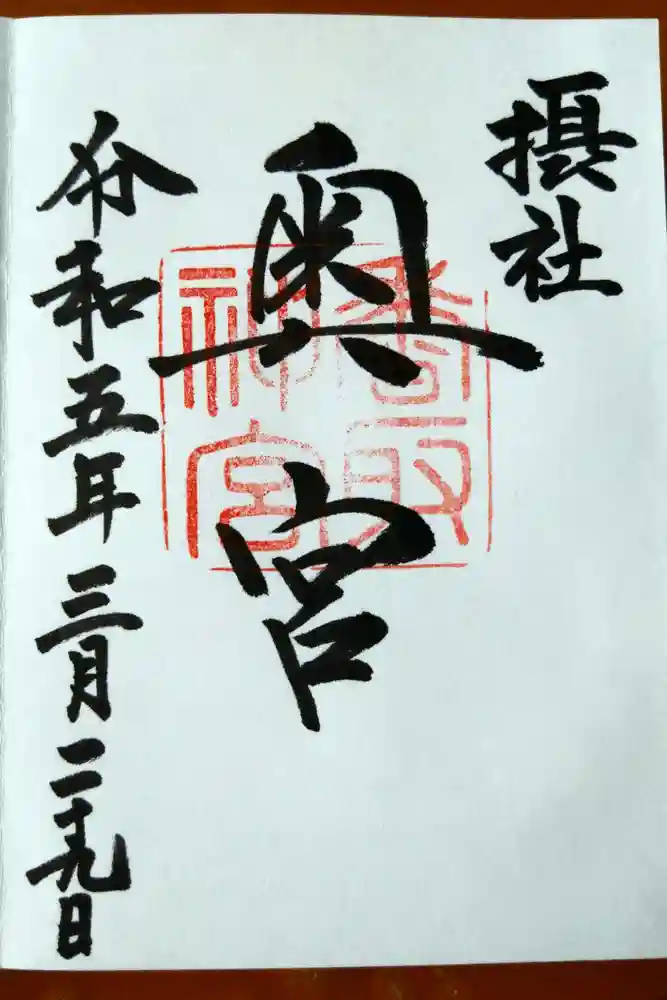 摂社
奥宮
香取
神宮
令和五年三月二十九日